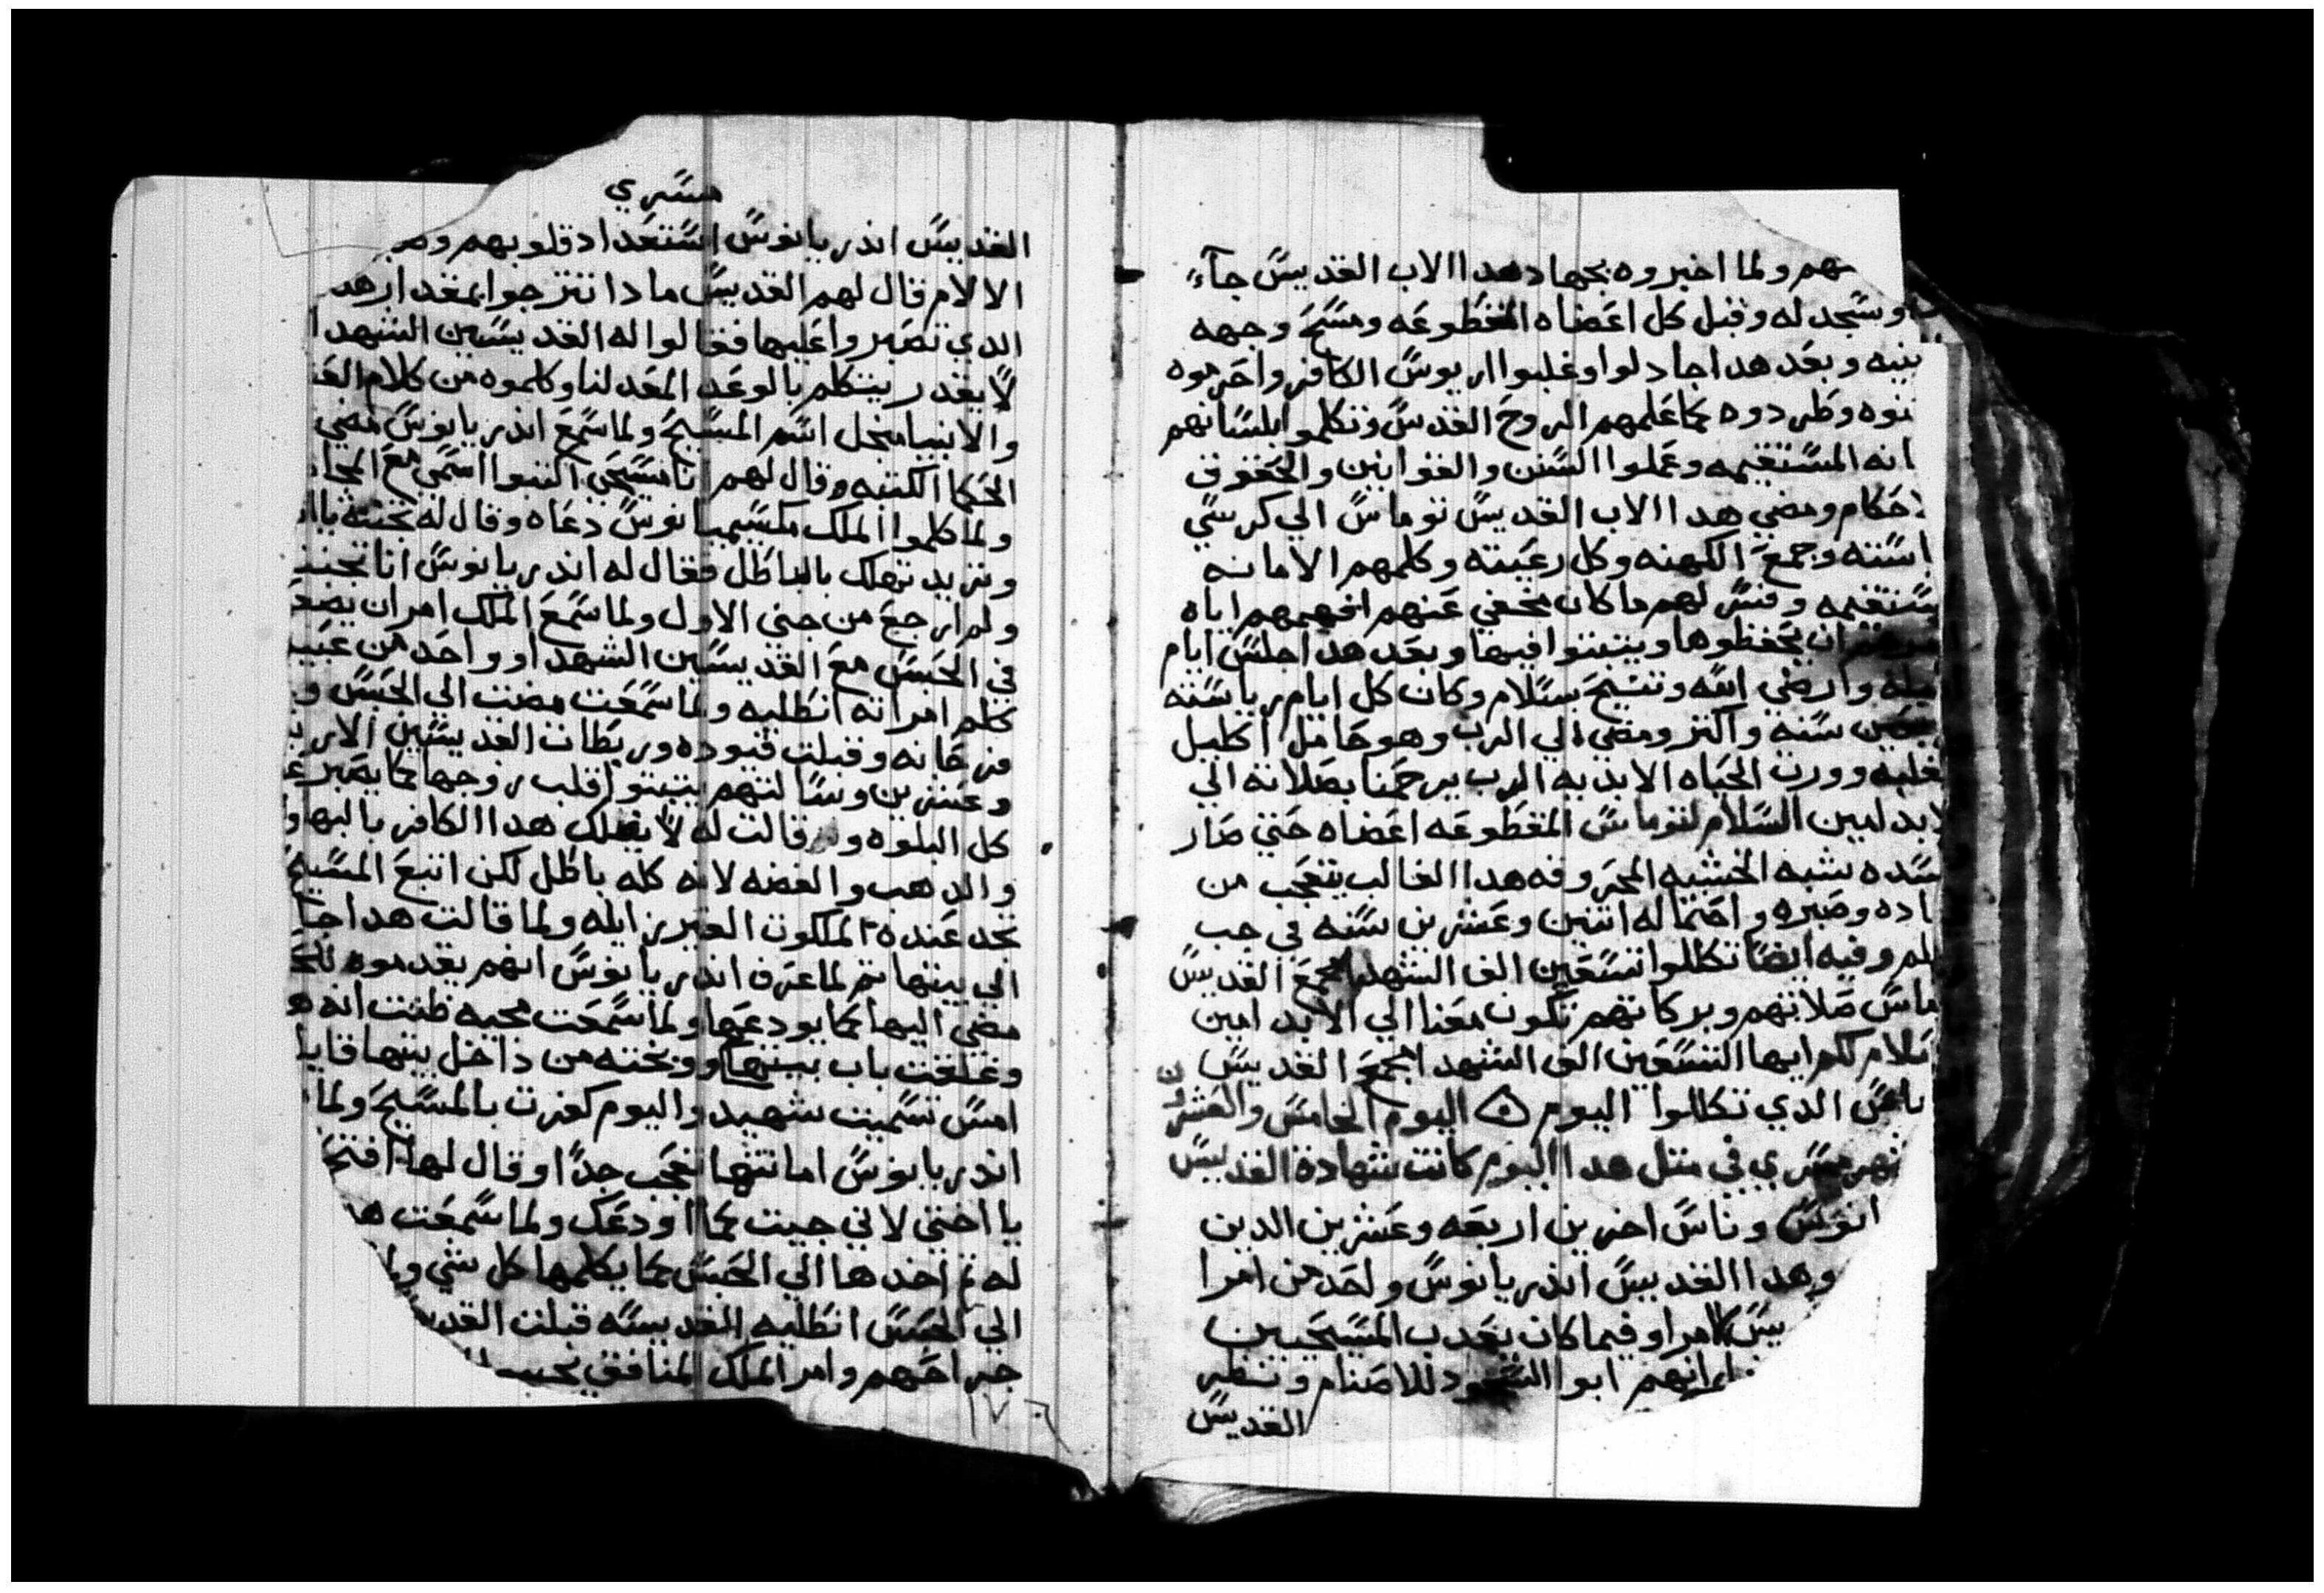 نهم ولما اخبروه بجهاد هدا الاب القديس جآء
وسجد له وقبل كل اعضاه المقطوعه ومسح وجهه
بنيه وبعد هدا جادلوا وغلبوا اريوس الكافر واحرموه
وطردوه كما علمهم الروح القدس وتكلموا بلسانهم
انه المستقيمه وعملوا السنن والقوانين والحقوق
احكام ومضي هدا الاب القديس توماس الي كرسي
وجمع الكهنه وكل رعيته وكلمهم الامانه
ستقيمه وفسر لهم ما كان مخفي عنهم افهمهم اياه
ان يحفظوها ويتبتوا فيها وبعد هدا جلس ايام
وارضي الله وتنيح بسلام وكان كل ايام رياسته
سنه واكتر ومضي الي الرب وهو حامل اكليل
غلبه وورت الحياه الابديه الرب يرحمنا بصلاته الي
لابد امين السلام لتوماس المقطوعه اعضاه حتي صار
سده شبه الخشبه المحروقه هدا الغالب يتعجب من
اده وصبره واحتماله اتنين وعشرين سنه في جب
لم وفيه ايضا تكللوا تسعين الف الشهدا بمجمع القديس
ماس صلاتهم وبركاتهم تكون معنا الي الابد امين
سلام لكم ايها التسعين الف الشهدا بمجمع القديسين
الدي تكللوا اليوم ۞ اليوم الخامس والعشر
شهر مسري في متل هدا اليوم كانت شهادة القديس
انوس وناس اخرين اربعه وعشرين الدين
وهدا القديس اندريانوس واحد من امرا
امرا وفيما كان يعدب المسيحيين
ابوا السجود للاصنام ونظر
القديس
مسري
القديس اندريانوس استعداد قلوبهم وصبر
الالام قال لهم القديس مادا تترجوا بمقدار هد
الدي تصبروا عليها فقالوا له القديسين الشهدا
لا يقدر يتكلم بالوعد المعد لنا وكلموه من كلام
والانبيا منجل اسم المسيح ولما سمع اندريانوس مضي
الحكما الكتبه وقال لهم انا مسيحي اكتبوا اسمي مع
ولما كلموا الملك مكسيميانوس دعاه وقال له
وتريد تهلك بالباطل فقال له اندريانوس انا
ولم ارجع من جني الاول ولما سمع الملك امر ان يضعو
في الحبس مع القديسين الشهدا وواحد من
كلم امراته انطليه ولما سمعت مضت الي الحبس و
وقبلت قيوده ورباطات القديسين الار
وعشرين وسالتهم يتبتوا قلب زوجها كما يصبر
كل البلوه وقالت له لا يضلك هدا الكافر بالبها
والدهب والفضه لانه كله باطل لكن اتبع المسيح
تجد عنده الملكوت الغير زايله ولما قالت هدا
الي بيتها تم لما عرف اندريانوس انهم يقدموه
مضي اليها كما يودعها ولما سمعت مجيه ظنت انه
وغلقت باب بيتها ووبخته من داخل بيتها قايلا
امس تسميت شهيد واليوم كفرت بالمسيح ولما
اندريانوس امانتها تعجب جدا وقال لها افتح
يا اختي لاني جيت كما اودعك ولما سمعت
له تم اخدها الي الحبس كما يكلمها كل شي
الي الحبس انطليه القديسه قبلت
جراحهم وامر الملك المنافق
١٧٦